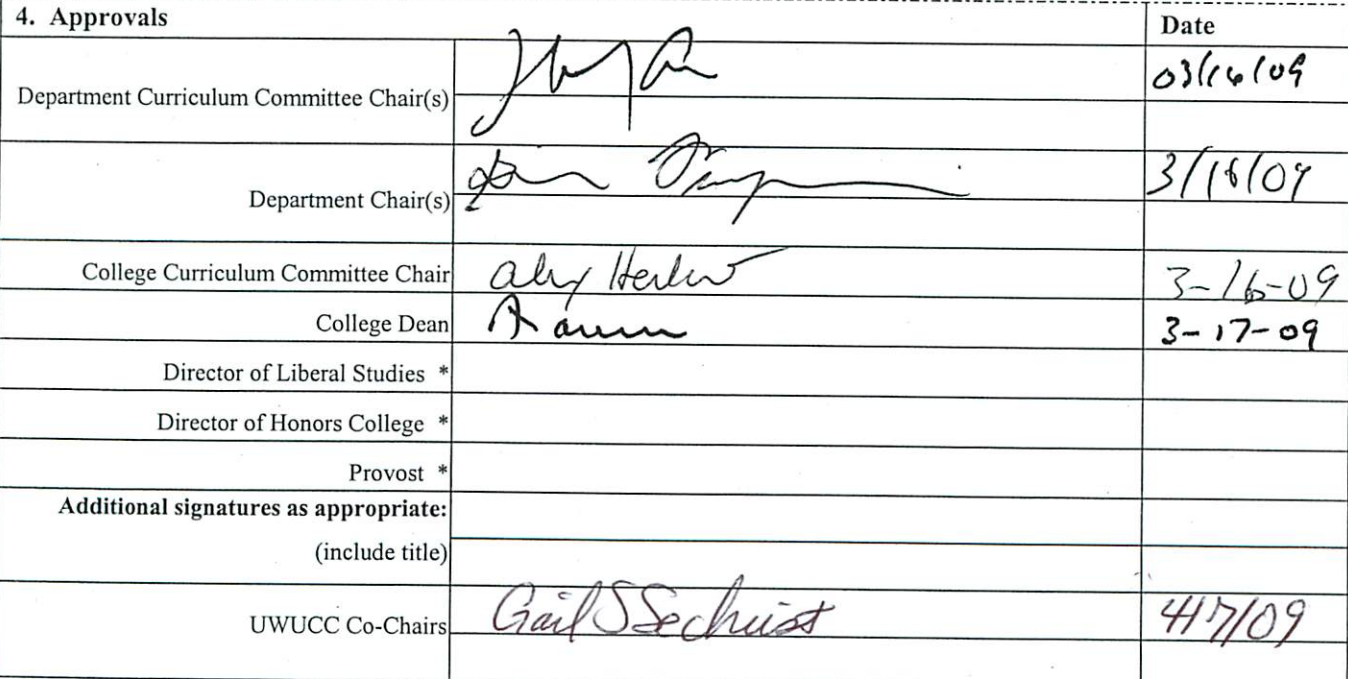 4. Approvals Date
Department Curriculum Committee Chair(s) 03/16/09
Department Chair(s)
College Curriculum Committee Chair 3-16-09
College Dean 3-17-09
Director of Liberal Studies *
Director of Honors College *
Provost *
Additional signatures as appropriate:
(include title)
UWUCC Co-Chairs Gail S Sechrist